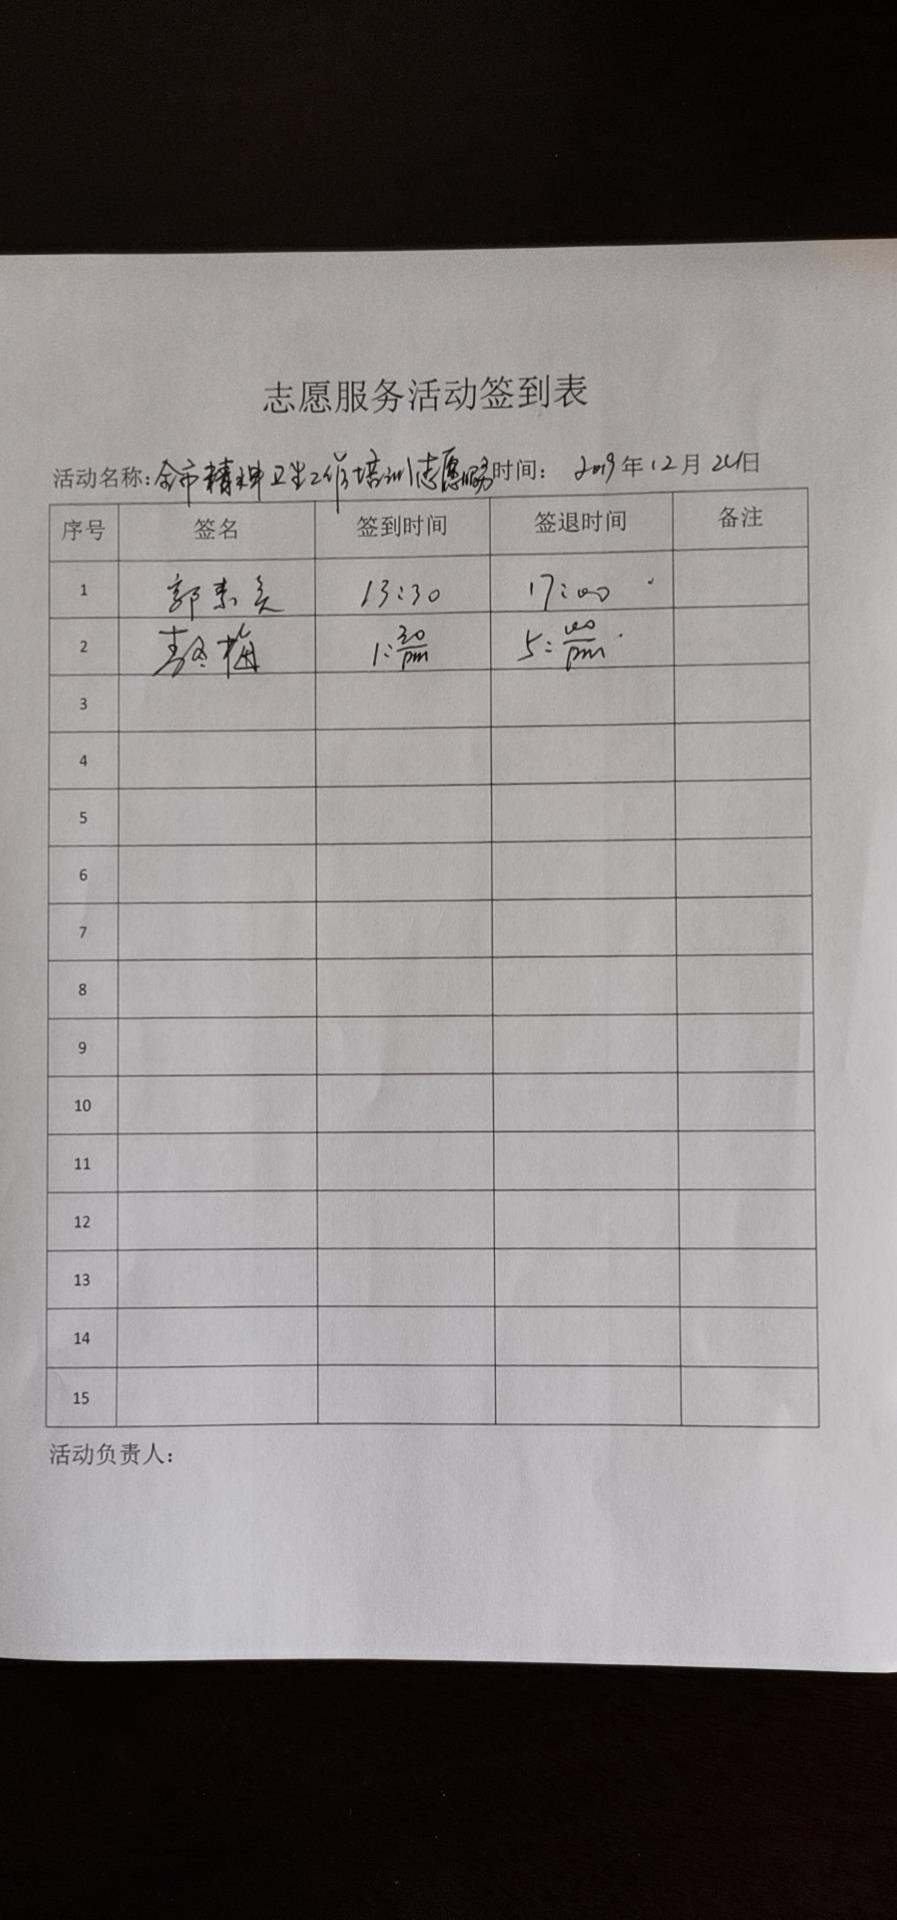 志愿服务活动签到表
活动名称:全市精神卫生工作培训志愿服务时间: 2019年12月24日
序号 签名 签到时间 签退时间 备注
1 郭素 13:30 17:00
2 梅 1:30 pm 5:00 pm
3
4
5
6
7
8
9
10
11
12
13
14
15
活动负责人: